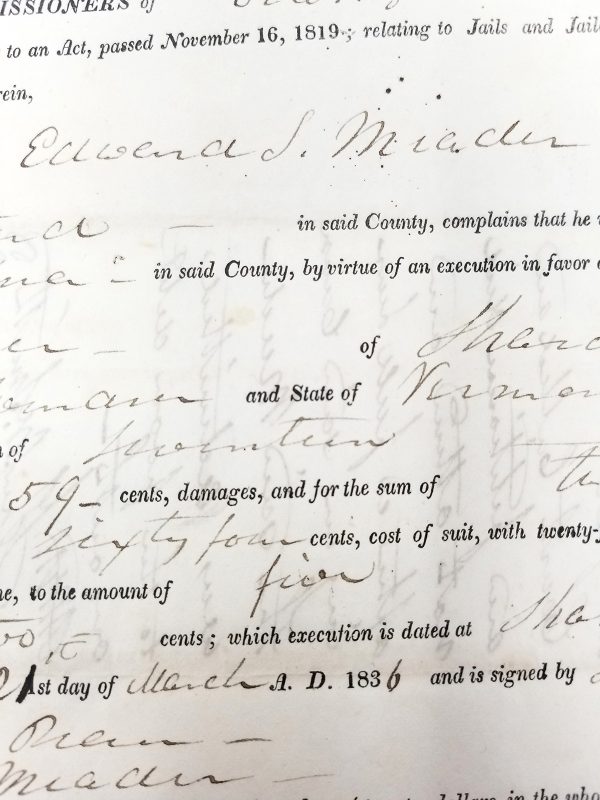 ISSIONERS of
to an Act, passed November 16, 1819; relating to Jails and Jail
rein,
Edward S. Meader
in said County, complains that he
in said County, by virtue of an execution in favor
er – of Shar
and State of Vermon
of
59– cents, damages, and for the sum of
sixty four cents, cost of suit, with twenty-
me, to the amount of five
cents; which execution is dated at Sha
21st day of March A. D. 1836 and is signed by
Meader –
in the who